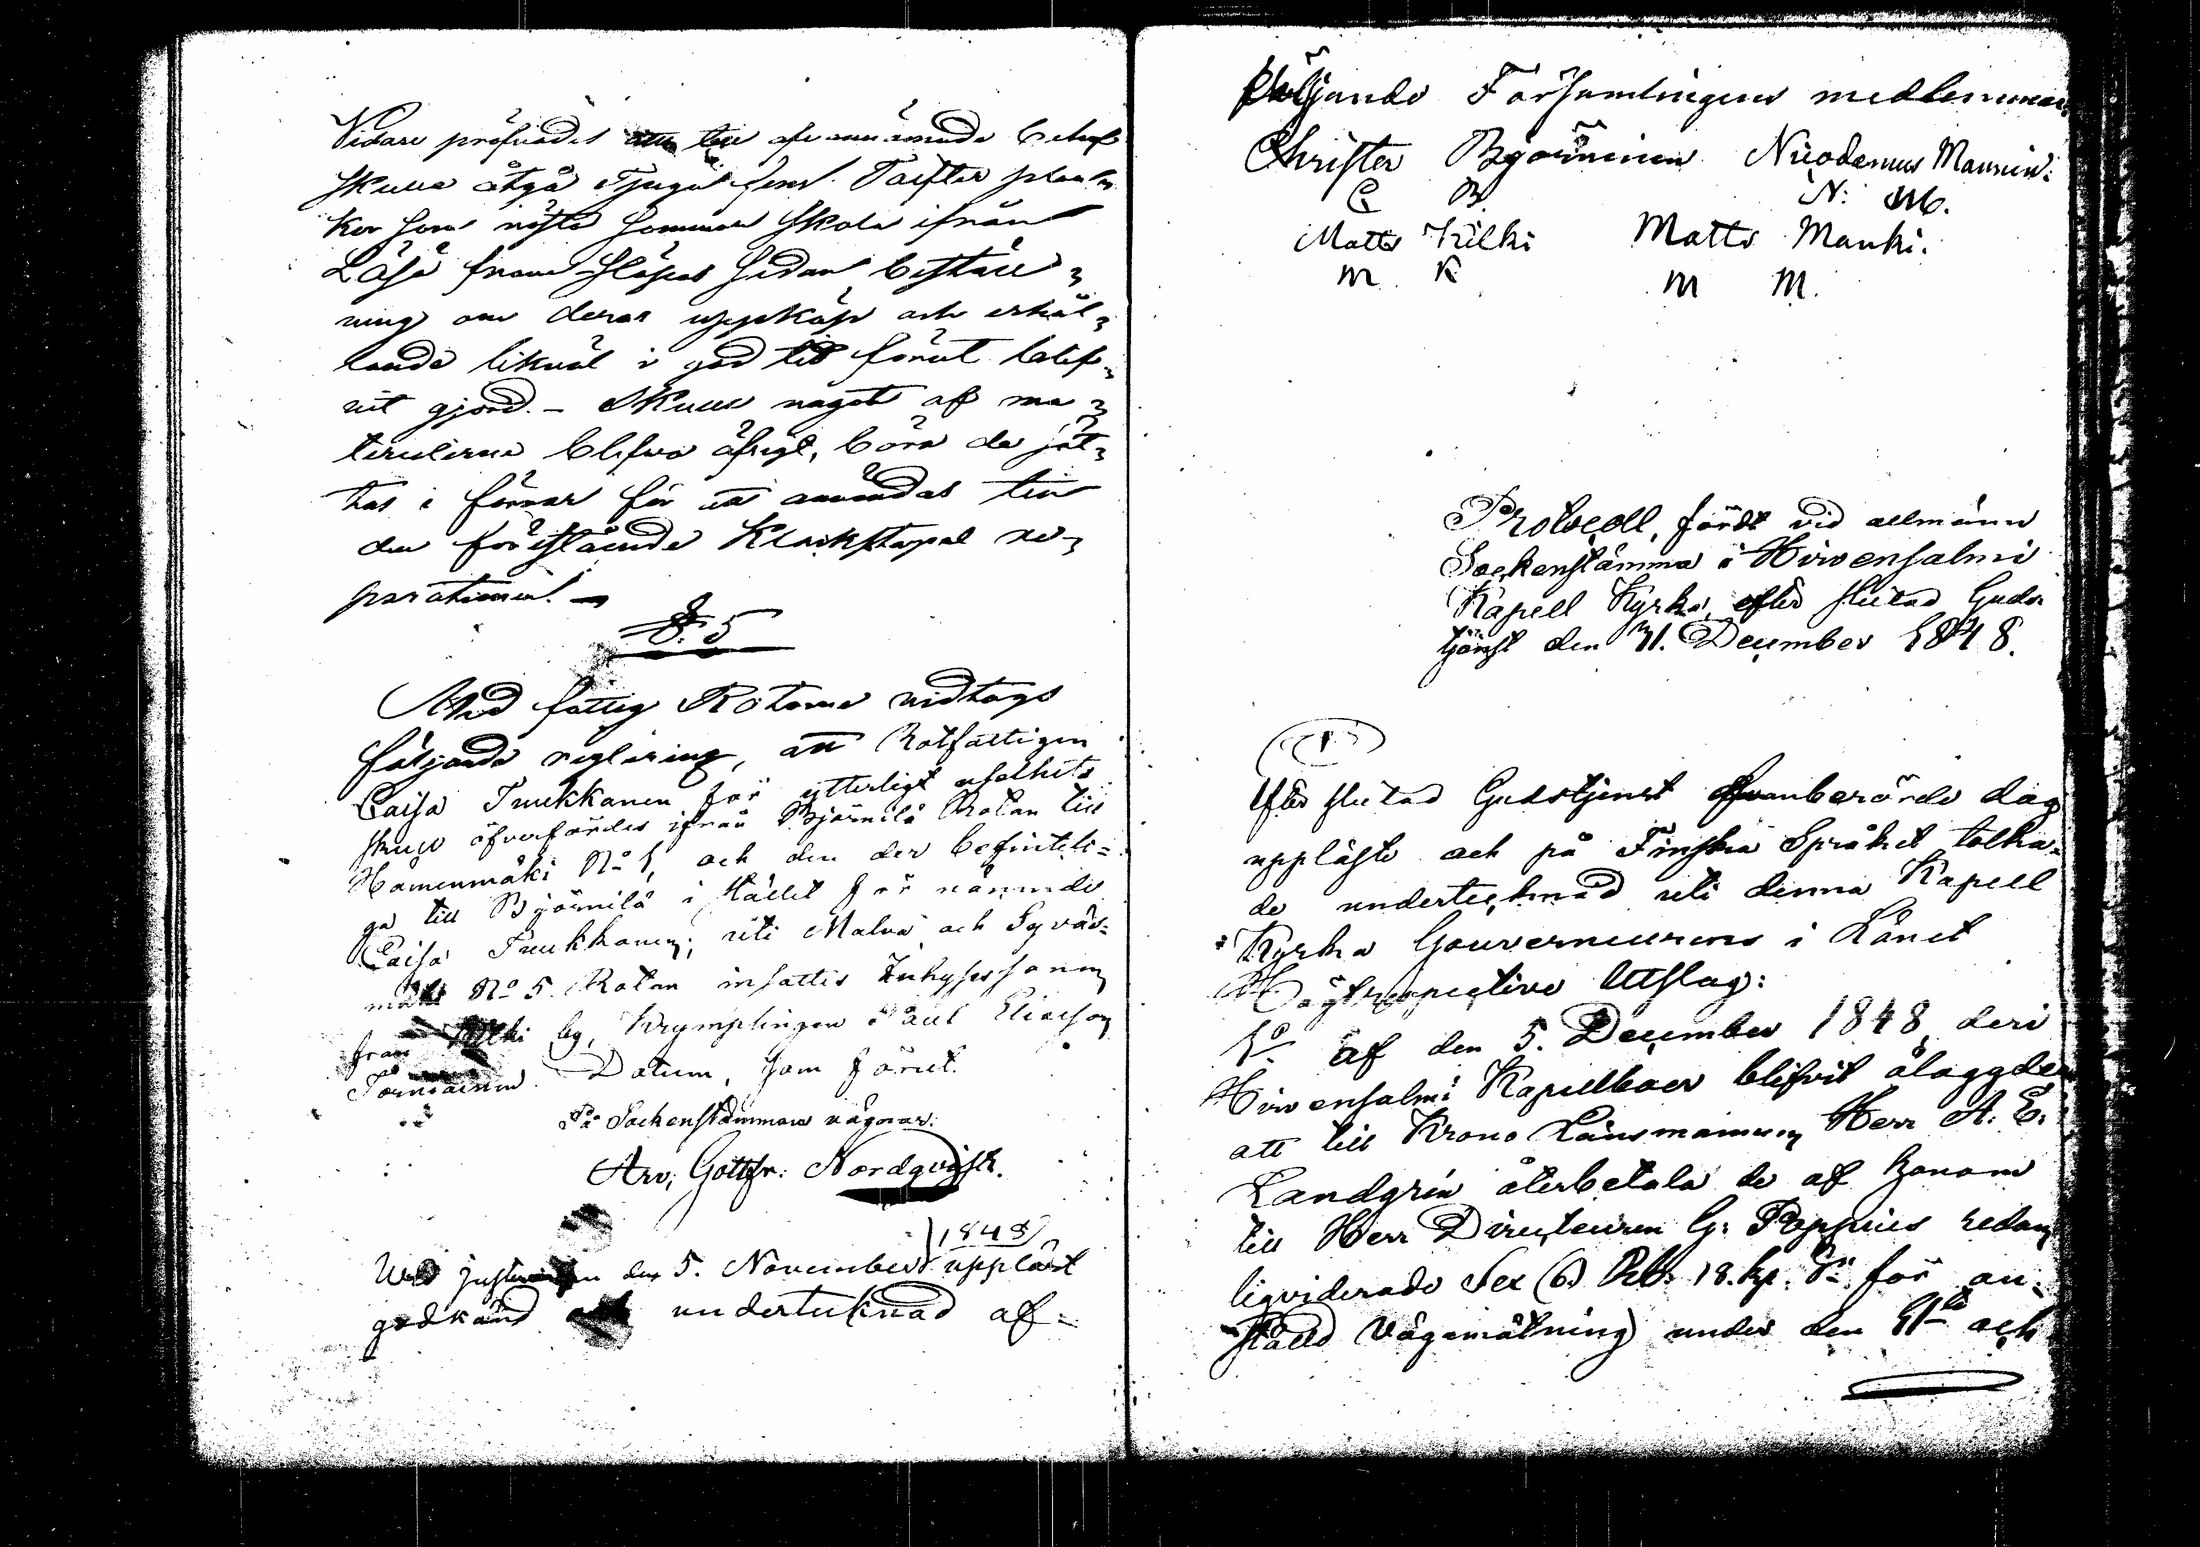 Vidare pröfvades att till ofvannämnde behof
skulle åtgå Tjugo fem Tolfter plan-
kor som nästa sommar skola ifrån
Läsä fram släpas sedan beställ=
ning om deras uppköp och erhål=
lande likväl i god tid förut blif=
vit gjord. – Skulle något af ma=
terialierna blifva öfrigt, böra de sät=
tas i förvar för att användas till
den förestående Klockstapel re=
parationen. –
§. 5
Med fattig Rotarne vidtogs
följande reglering, att Rotfattigen
Caisa Tuukkanen för ytterligt uselhets
skull öfverfördes ifrån Björnilä Rotan till
Hämenmäki No 1, och den der befintli=
ga till Björnilä i stället för nämnde
Caisa Tuukkanen; uti Malva och Syväs=
mäki No 5. Rotan insattes Inhyses sonen
från by, Krymplingen Paul Eliasson
Törniäinen. Datum, som förut.
På Sockenstämmans vägnar:
Arv. Gottfr: Nordqvist.
Wid justeringen den 5. November (1848) uppläst
godkänd och undertecknad af=
följande Församlingens medlemmar.
Christer Björninen Nicodemus Manninen:
C B N: M.
Matts Kilki Matts Manki.
M K M M.
Protocoll, fördt vid allmänn
Sockenstämma i Hirvensalmi
Kapell Kyrka, efter slutad Guds
tjenst den 31. December 1848.
1
Efter slutad Gudstjenst ofvanberörde dag
uppläste och på Finska Språket tolka=
de undertecknad uti denna Kapell
Kyrka Gouverneurens i Länet
Högtrespective Utslag:
1o af den 5. December 1848, deri
Hirvensalmi Kapellboer blifvit ålaggde
att till Krono Länsmannen Herr A. E.
Landgrén återbetala de af honom
till Herr Directeuren G: Poppius redan
liqviderade Sex (6) Rub. 18. kp. Sr för an=
ställd Vägamätning under den och